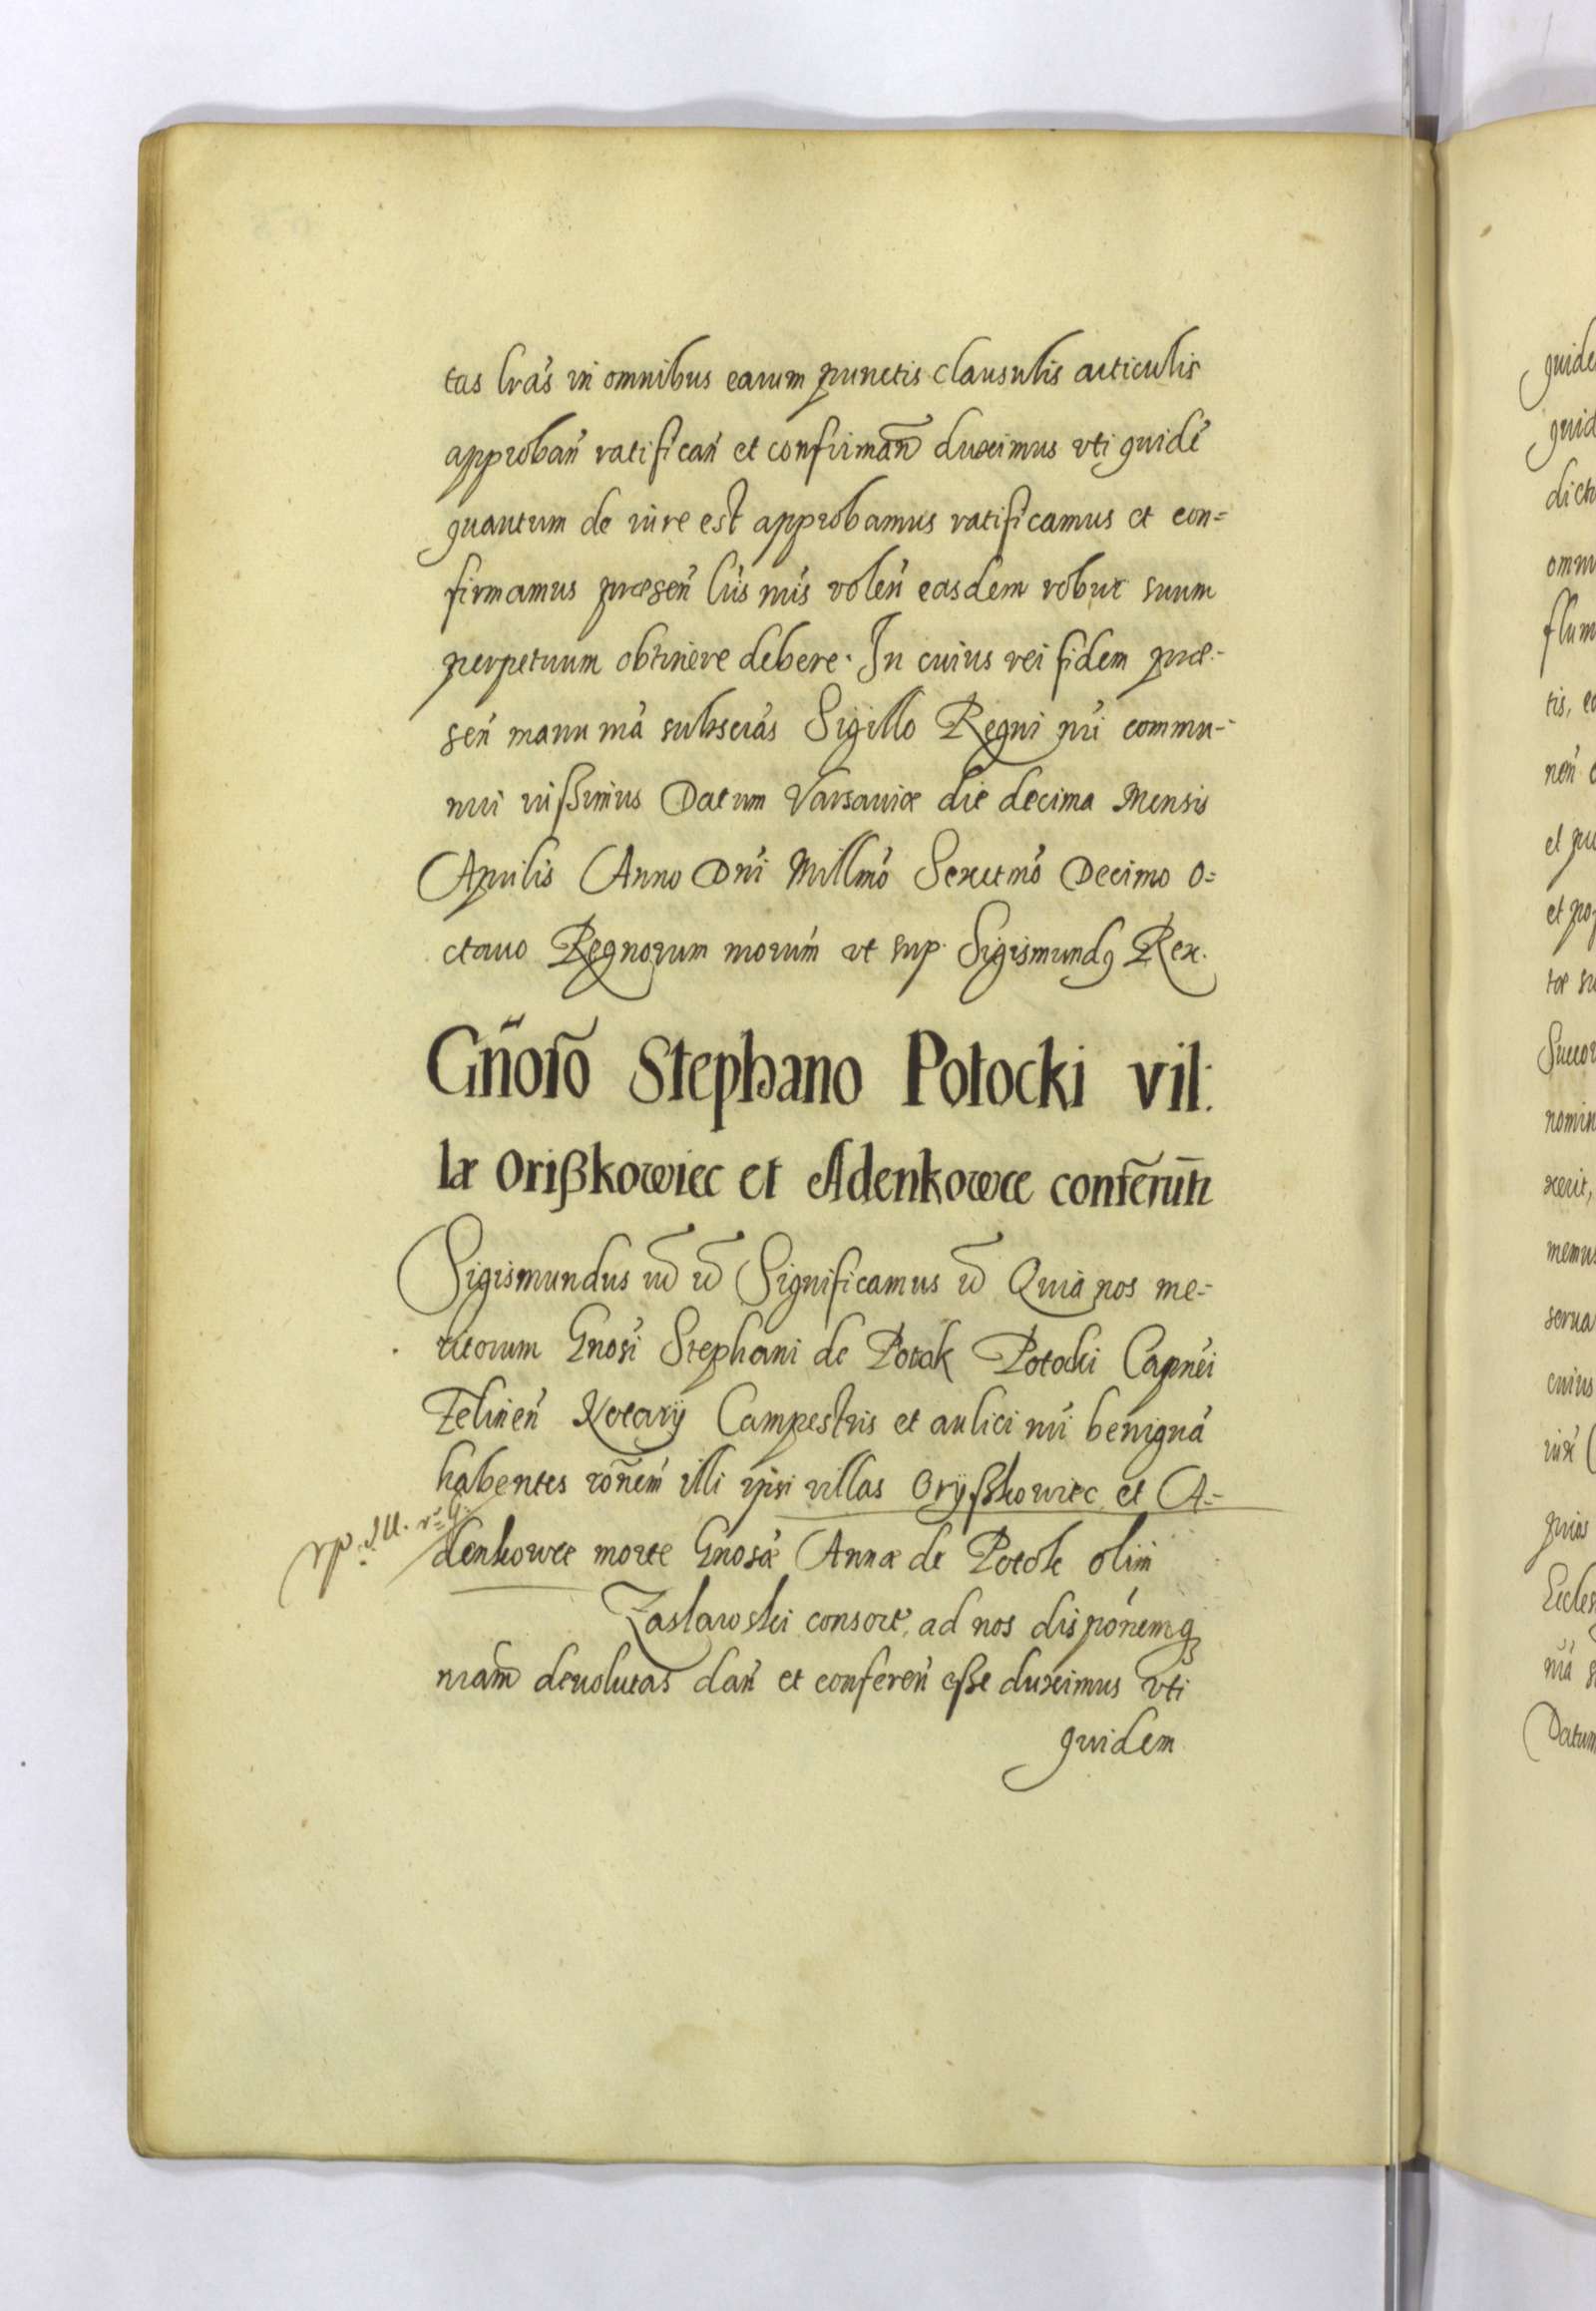 tas lrás in omnibus earum punctis clausulis articulis
approbań ratificań et confirmañ duximus vti quidé
quantum de iure est approbamus ratificamus et con=
firmamus præseń lris nris voleń easdem robur suum
perpetuum obtinere debere. In cuius rei fidem præ-
señ manu nrá subscrás Sigillo Regni nri commu-
niri iußimus Datum Varsauiæ die decima Mensis
Aprilis Anno Dni Millmó Sexctmó Decimo o=
ctauo Regnorum nrorum vt sup. Sigismundꝯ Rex.
Gñoro Stephano Potocki vil:
læ Orißkowiec et Adenkowce conferunt̃
Sigismundus Significamus Quia nos me-
ritorum Gnosi Stephani de Potok Potocki Capnei
Felineń Notarij Campestris et aulici nri benigná
habentes rõnem illi ipsi villas Oryßkowiec et A-
denkowce morte Gnosæ Annæ de Potok olim
Zaslawski consort. ad nos disponemq
nram deuolutas dań et confereń eße duximus vti
quidem
quide
quid
dict
omn
flum
tis, e
neń
et pu
et po
tæ su
Succo
nomin
xerit,
memus
serua
cuius
iuré
prios
Eccles
nrá
Datum